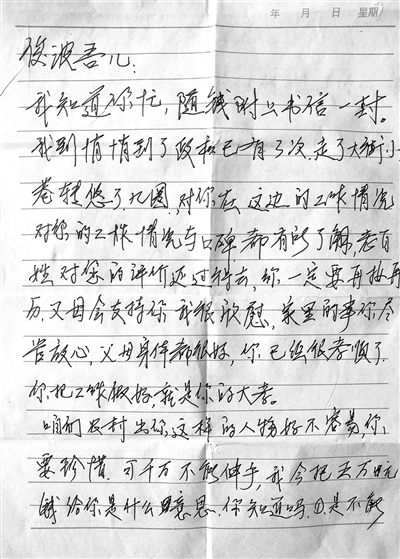 年 月 日 星期
俊波吾儿:
我知道你忙,随钱附上书信一封。
我到悄悄到了政和已有了次.走了大街小
巷转悠了几圈,对你在这边的工作情况
对您的工作情况与口碑都有所了解,老百
姓对您的评价还过得去,你一定要再接再
历.父母会支持你我很欣慰,家里的事你尽
管放心,父母身体都很好,你已经很孝顺了.
你把工作做好,就是你的大孝.
咱们农村出你这样的人物好不容易,你
要珍惜.可千万不能伸手,我今把 万
钱给你是什么 意思.你知道吗.①是不能